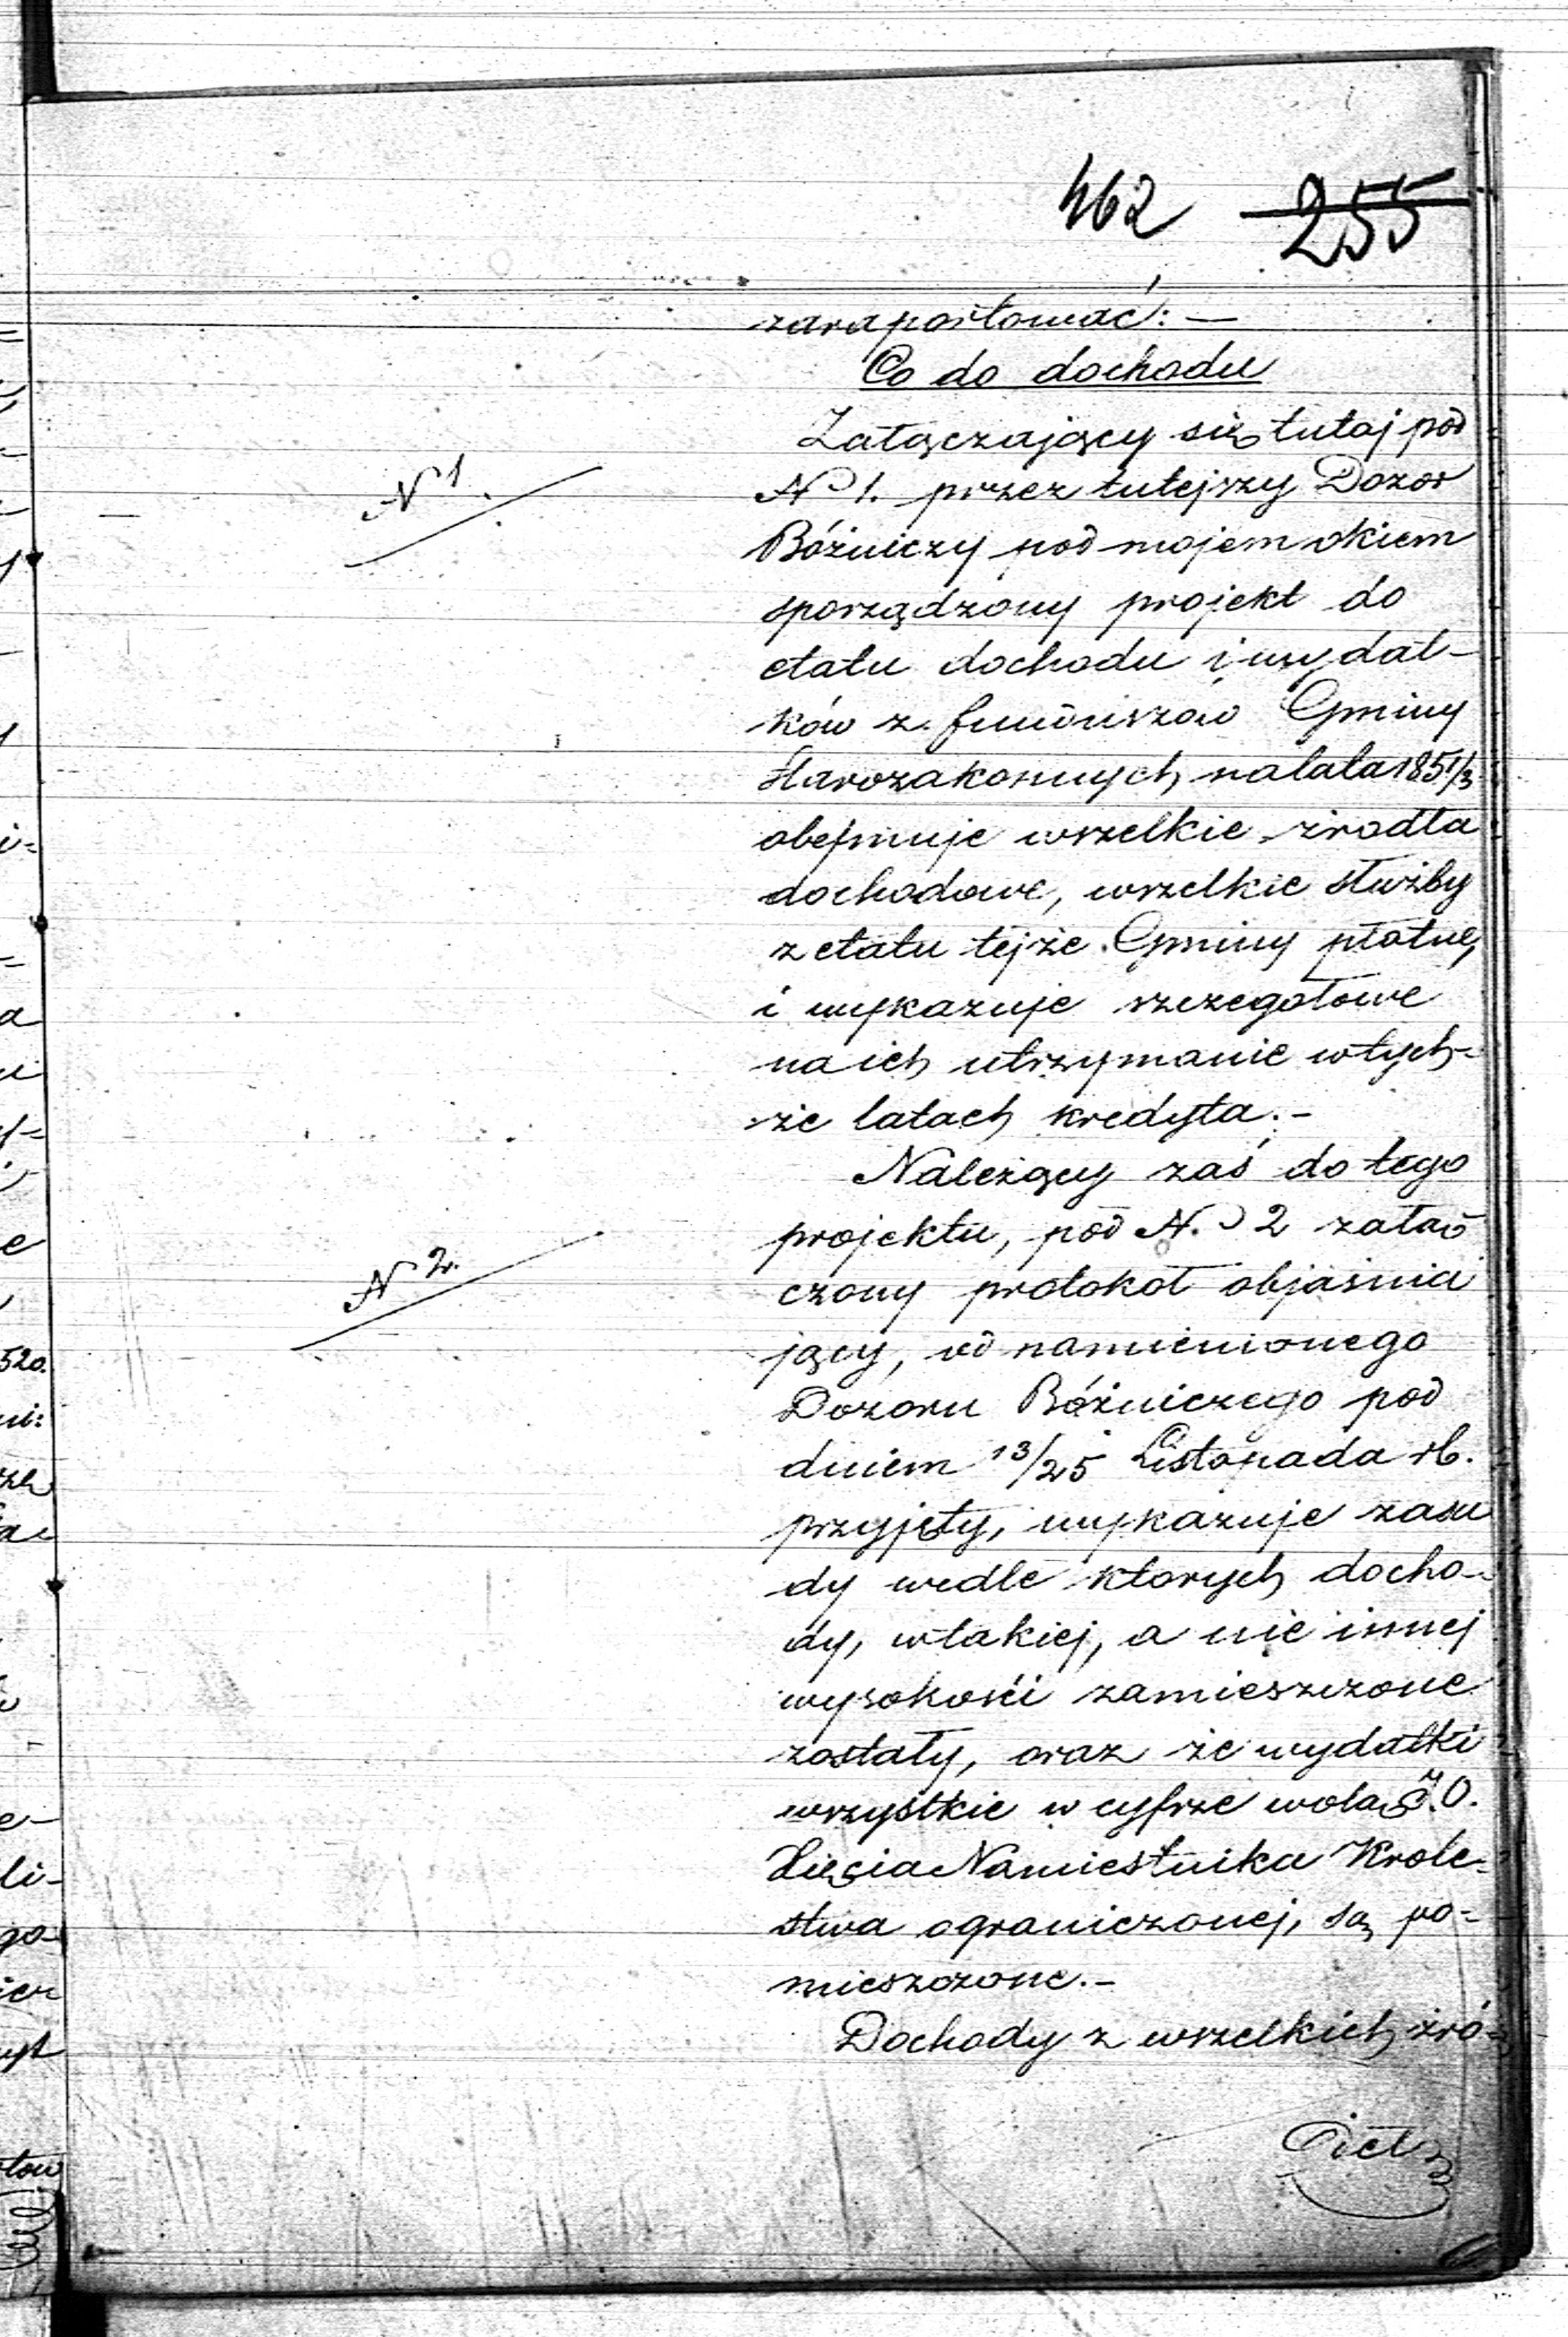 462 255
zaraportować: —
Co do dochodu
Załączający się tutaj pod
N 1.
N 1. przez tutejszy Dozor
Bóżniczy pod mojem okiem
sporządzony projekt do
etatu dochodu i wydat-
ków z funduszów Gminy
Starozakonnych na lata 1851/3
obejmuje wszelkie źrodła
dochodowe, wszelkie służby
z etatu tejże Gminy płatne,
i wykazuje szczegołowe
na ich utrzymanie w tych-
że latach kredyta.-
Należący zaś do tego
projektu, pod N. 2 załą-
N 2.
czony protokoł objaśnia
jący, od namienionego
Dozoru Bóżniczego pod
dniem 13/25 Listopada rb.
przyjęty, wykazuje zasa
dy wedle ktorych docho-
dy, w takiej, a nie innej
wysokości zamieszczone
zostały, oraz że wydatki
wszystkie w cyfrze wolą J.O.
Xięcia Namiestnika Krole-
stwa ograniczonej, są po-
mieszczone.-
Dochody z wszelkich źró-